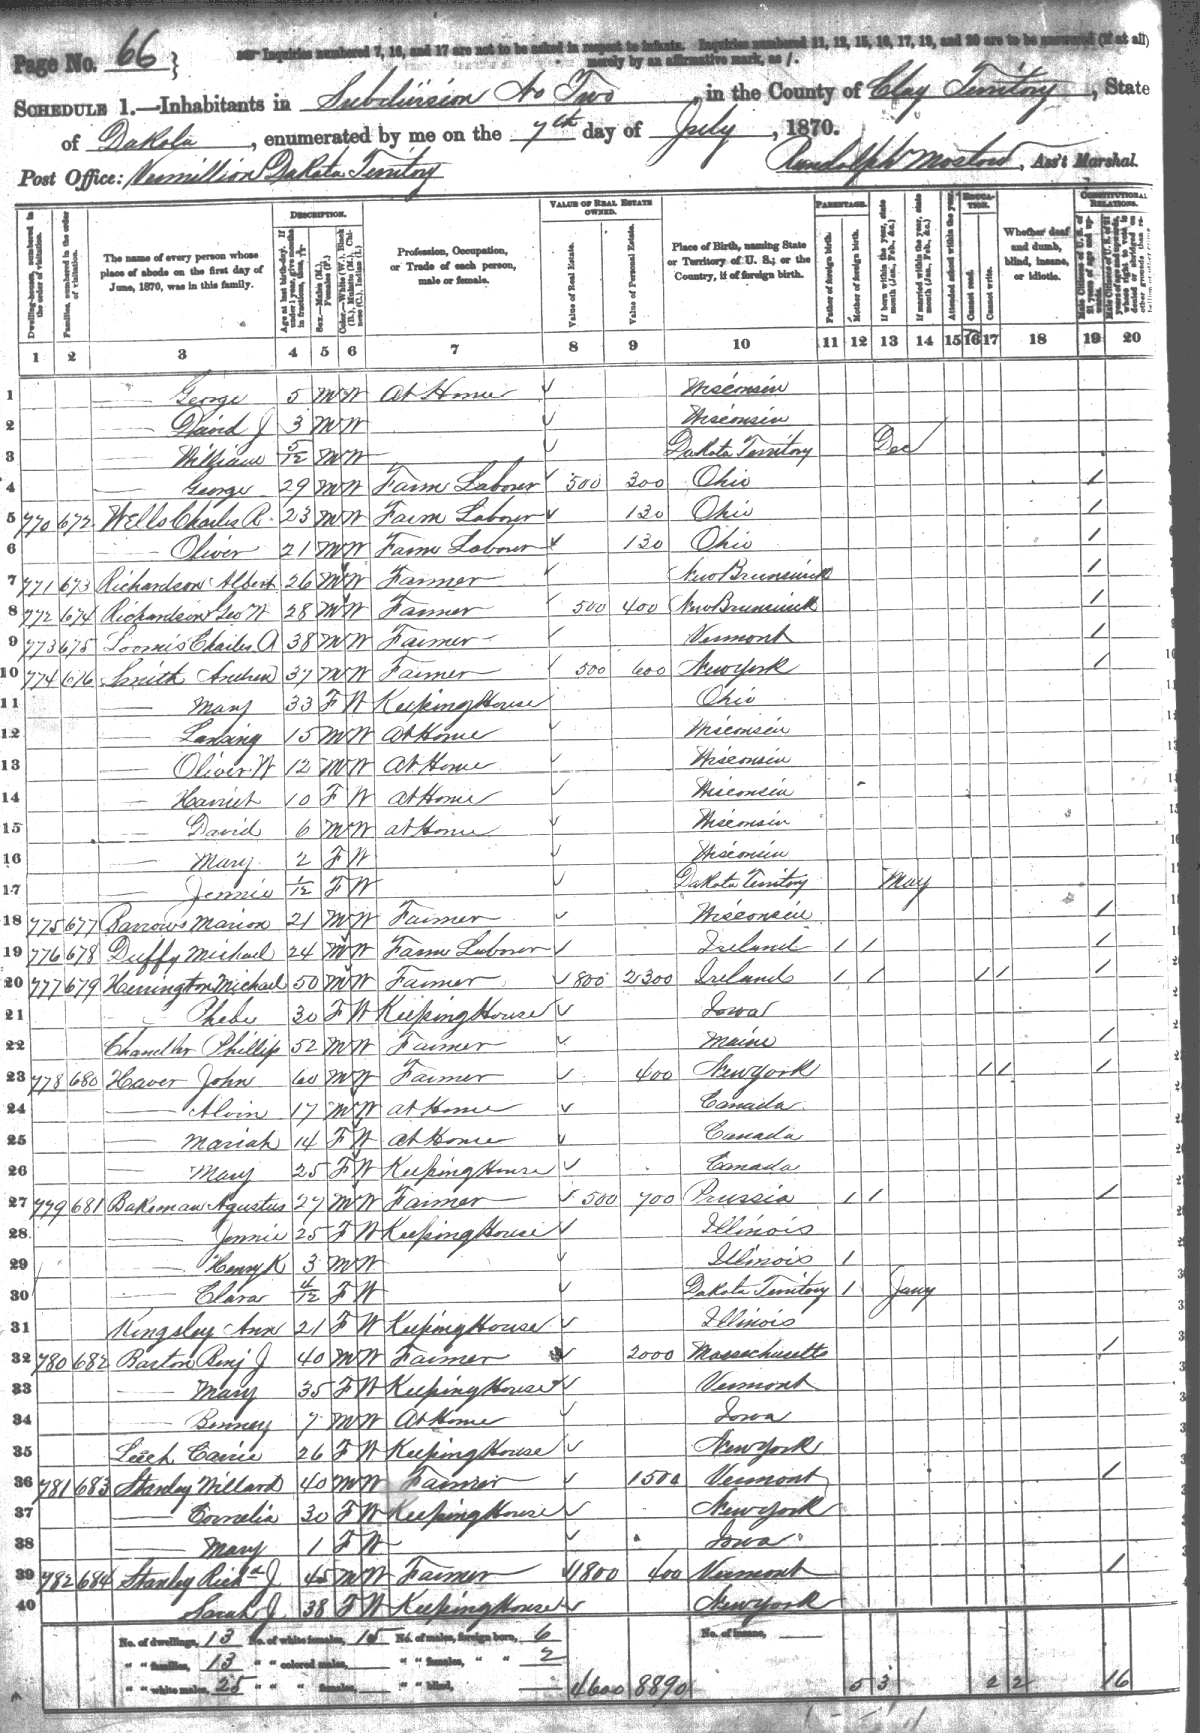 Page No. 66 }
Inquiries numbered 7, 16, and 17 are not to be asked in respect to infants. Inquiries numbered 11, 12, 15, 16, 17, 19, and 20 are to be answered (if at all)
merely by an affirmative mark, as /.
SCHEDULE 1.—Inhabitants in Subdivision No Two, in the County of Clay Territory, State
of Dakota, enumerated by me on the 7th day of July, 1870.
Post Office: Vermillion Dakota Territory
Ass't Marshal.
Dwelling-houses, numbered in the order of visitation.
Families, numbered in the order of visitation.
The name of every person whose place of abode on the first day of June, 1870, was in this family.
DESCRIPTION.
Age at last birth-day. If under 1 year, give months in fractions, thus, 3/12
Sex.—Males (M.), Females (F.)
Color.—White (W.), Black (B.), Mulatto (M.), Chinese (C.), Indian (I.)
Profession, Occupation, or Trade of each person, male or female.
VALUE OF REAL ESTATE OWNED.
Value of Real Estate.
Value of Personal Estate.
Place of Birth, naming State or Territory of U. S.; or the Country, if of foreign birth.
PARENTAGE.
Father of foreign birth.
Mother of foreign birth.
If born within the year, state month (Jan., Feb., &c.)
If married within the year, state month (Jan., Feb., &c.)
Attended school within the year.
EDUCATION.
Cannot read.
Cannot write.
Whether deaf and dumb, blind, insane, or idiotic.
CONSTITUTIONAL RELATIONS.
1 2 3 4 5 6 7 8 9 10 11 12 13 14 15 16 17 18 19 20
1 George 5 M W At Home Wisconsin
2 David J 3 M W Wisconsin
3 William 5/12 M W Dakota Territory Dec
4 George 29 M W Farm Laborer 500 300 Ohio 1
5 770 672 Wells Charles R 23 M W Farm Laborer 130 Ohio 1
6 Oliver 21 M W Farm Laborer 130 Ohio 1
7 771 673 Richardson Albert 26 M W Farmer New Brunswick 1
8 772 674 Richardson Geo W 28 M W Farmer 500 400 New Brunswick 1
9 773 675 Loomis Charles A 38 M W Farmer Vermont 1
10 774 676 Smith Andrew 37 M W Farmer 500 600 New York 1
11 Mary 33 F W Keeping House Ohio
12 Lansing 15 M W At Home Wisconsin
13 Oliver W 12 M W At Home Wisconsin
14 Harriet 10 F W At Home Wisconsin
15 David 6 M W At Home Wisconsin
16 Mary 2 F W Wisconsin
17 Jennie 1/12 F W Dakota Territory May
18 775 677 Barrows Marion 21 M W Farmer Wisconsin 1
19 776 678 Duffy Michael 24 M W Farm Laborer Ireland 1 1 1
20 777 679 Herrington Michael 50 M W Farmer 800 2300 Ireland 1 1 1 1 1
21 Phebe 30 F W Keeping House Iowa
22 Chandler Phillip 52 M W Farmer Maine 1
23 778 680 Haver John 60 M W Farmer 400 New York 1 1 1
24 Alvin 17 M W At Home Canada
25 Mariah 14 F W At Home Canada
26 Mary 25 F W Keeping House Canada
27 779 681 Bakeman Agustus 27 M W Farmer 500 700 Prussia 1 1 1
28 Jennie 25 F W Keeping House Illinois
29 Henry K 3 M W Illinois 1
30 Clara 4/12 F W Dakota Territory 1 Jany
31 Kingsley Ann 21 F W Keeping House Illinois
32 780 682 Barton Benj J 40 M W Farmer 2000 Massachusetts 1
33 Mary 35 F W Keeping House Vermont
34 7 M W At Home Iowa
35 Leech Carrie 26 F W Keeping House New York
36 781 683 Stanley Willard 40 M W Farmer 1500 Vermont 1
37 Cornelia 30 F W Keeping House New York
38 Mary 1 F W Iowa
39 782 684 Stanley Richd J 45 M W Farmer 1800 400 Vermont 1
40 Sarah J 38 F W Keeping House New York
No. of dwellings, 13 No. of white females, 15 No. of males, foreign born, 6 No. of insane,
" " families, 13 " " colored males, " " females, " " 2
" " white males, 25 " " " females, " " blind, 4600 8890 5 3 2 2 16